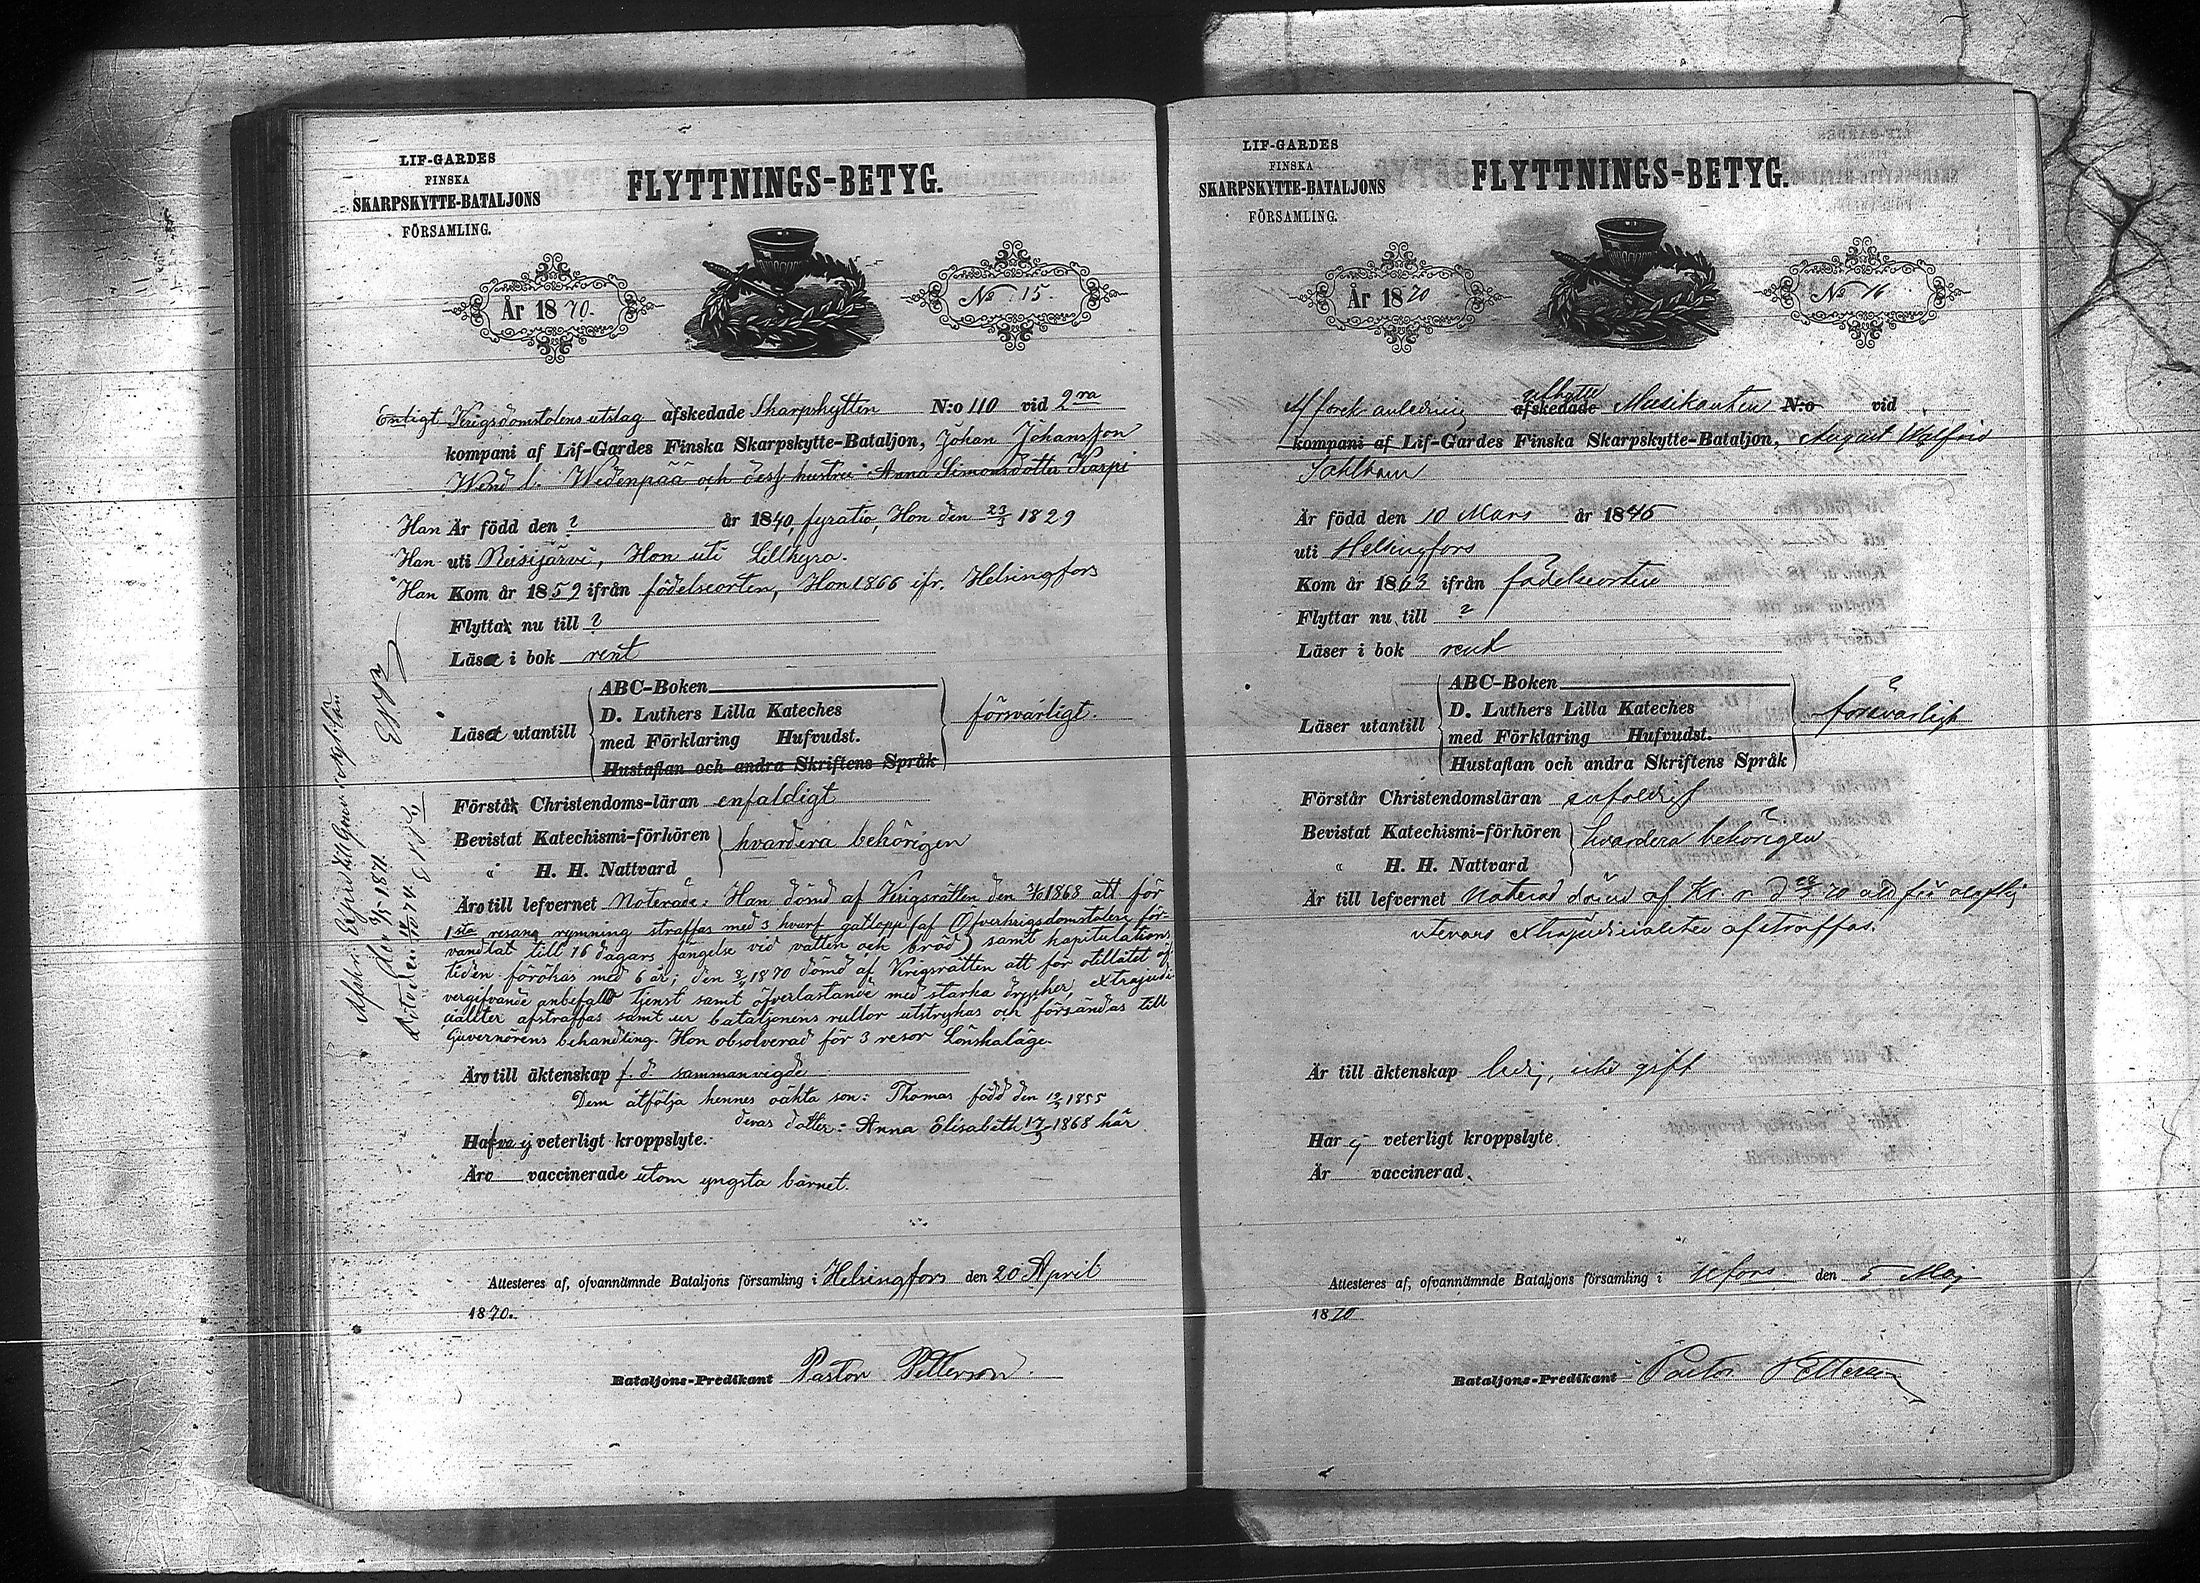 LIF-GARDES
FINSKA
SKARPSKYTTE-BATALJONS
FÖRSAMLING.
FLYTTNINGS-BETYG.
År 1870.
No 15.
Enligt Krigsdomstolens utslag afskedade Skarpskytten N:o 110 vid 2ra
kompani af Lif-Gardes Finska Skarpskytte-Bataljon, Johan Johansson
Wend l. Wedenpää och dess hustru Anna Simonsdotter Karpi
Han Är född den ? år 1840, fyratio, Hon den 23/3 1829
Han uti Reisijärvi, Hon uti Lillkyro.
Han Kom år 1859 ifrån födelseorten, Hon 1866 ifr. Helsingfors
Flyttar nu till ?
Läsa i bok rent
Läsa utantill
ABC-Boken
D. Luthers Lilla Kateches
med Förklaring Hufvudst.
Hustaflan och andra Skriftens Språk
försvarligt.
Förstår Christendoms-läran enfaldigt
Bevistat Katechismi-förhören
" H. H. Nattvard
hvardera behörigen
Äro till lefvernet Noterade: Han dömd af Krigsrätten den 1868 att för
1sta resans rymning straffas med 3 hvarf gatlopp (af Öfverkrigsdomstolen för-
vandlat till 16 dagars fängelse vid vatten och bröd) samt kapitulations
tiden förökas med 6 år; den 1870 dömd af Krigsrätten att för otillåtet öf-
vergifvande anbefalld tjenst samt öfverlastande med starka drycker, extrajudi-
cialiter afstraffas samt ur bataljonens rullor utstrykas och försändas till
Guvernörens behandling. Hon absolverad för 3 resor Lönskaläge.
Äro till äktenskap f. d. sammanvigde
Dem åtfölja hennes oäkta son: Thomas född den 1855
deras dotter: Anna Elisabeth 1868 här
Hafva ej veterligt kroppslyte.
Äro vaccinerade utom yngsta barnet.
Attesteres af, ofvannämnde Bataljons församling i Helsingfors den 20 April
1870.
Bataljons-Predikant Pastor Petterson.
LIF-GARDES
FINSKA
SKARPSKYTTE-BATALJONS
FÖRSAMLING.
FLYTTNINGS-BETYG.
År 1870
No 16
Af förek anledning utbytte
afskedade Musikanten N:o vid
kompani af Lif-Gardes Finska Skarpskytte-Bataljon, August Walfrid
Är född den 10 Mars år 1845
uti Helsingfors
Kom år 1863 ifrån födelseorten
Flyttar nu till ?
Läser i bok rent
Läser utantill
ABC-Boken
D. Luthers Lilla Kateches
med Förklaring Hufvudst.
Hustaflan och andra Skriftens Språk
försvarligt
Förstår Christendomsläran enfaldigt
Bevistat Katechismi-förhören
" H. H. Nattvard
hvardera behörigen
Är till lefvernet Noterad dömd af Kr. r. d 70 att för olaglig
utevaro extrajudicialiter afstraffas.
Är till äktenskap ledig, icke gift
Har ej veterligt kroppslyte
Är vaccinerad.
Attesteres af, ofvannämnde Bataljons församling i Hfors den 5 Maj
1870
Bataljons-Predikant Pastor Petterson